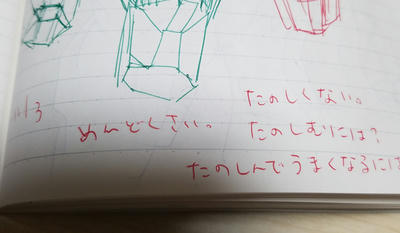 たのしくない。
めんどくさい。 たのしむりには？
たのしんでうまくなるには